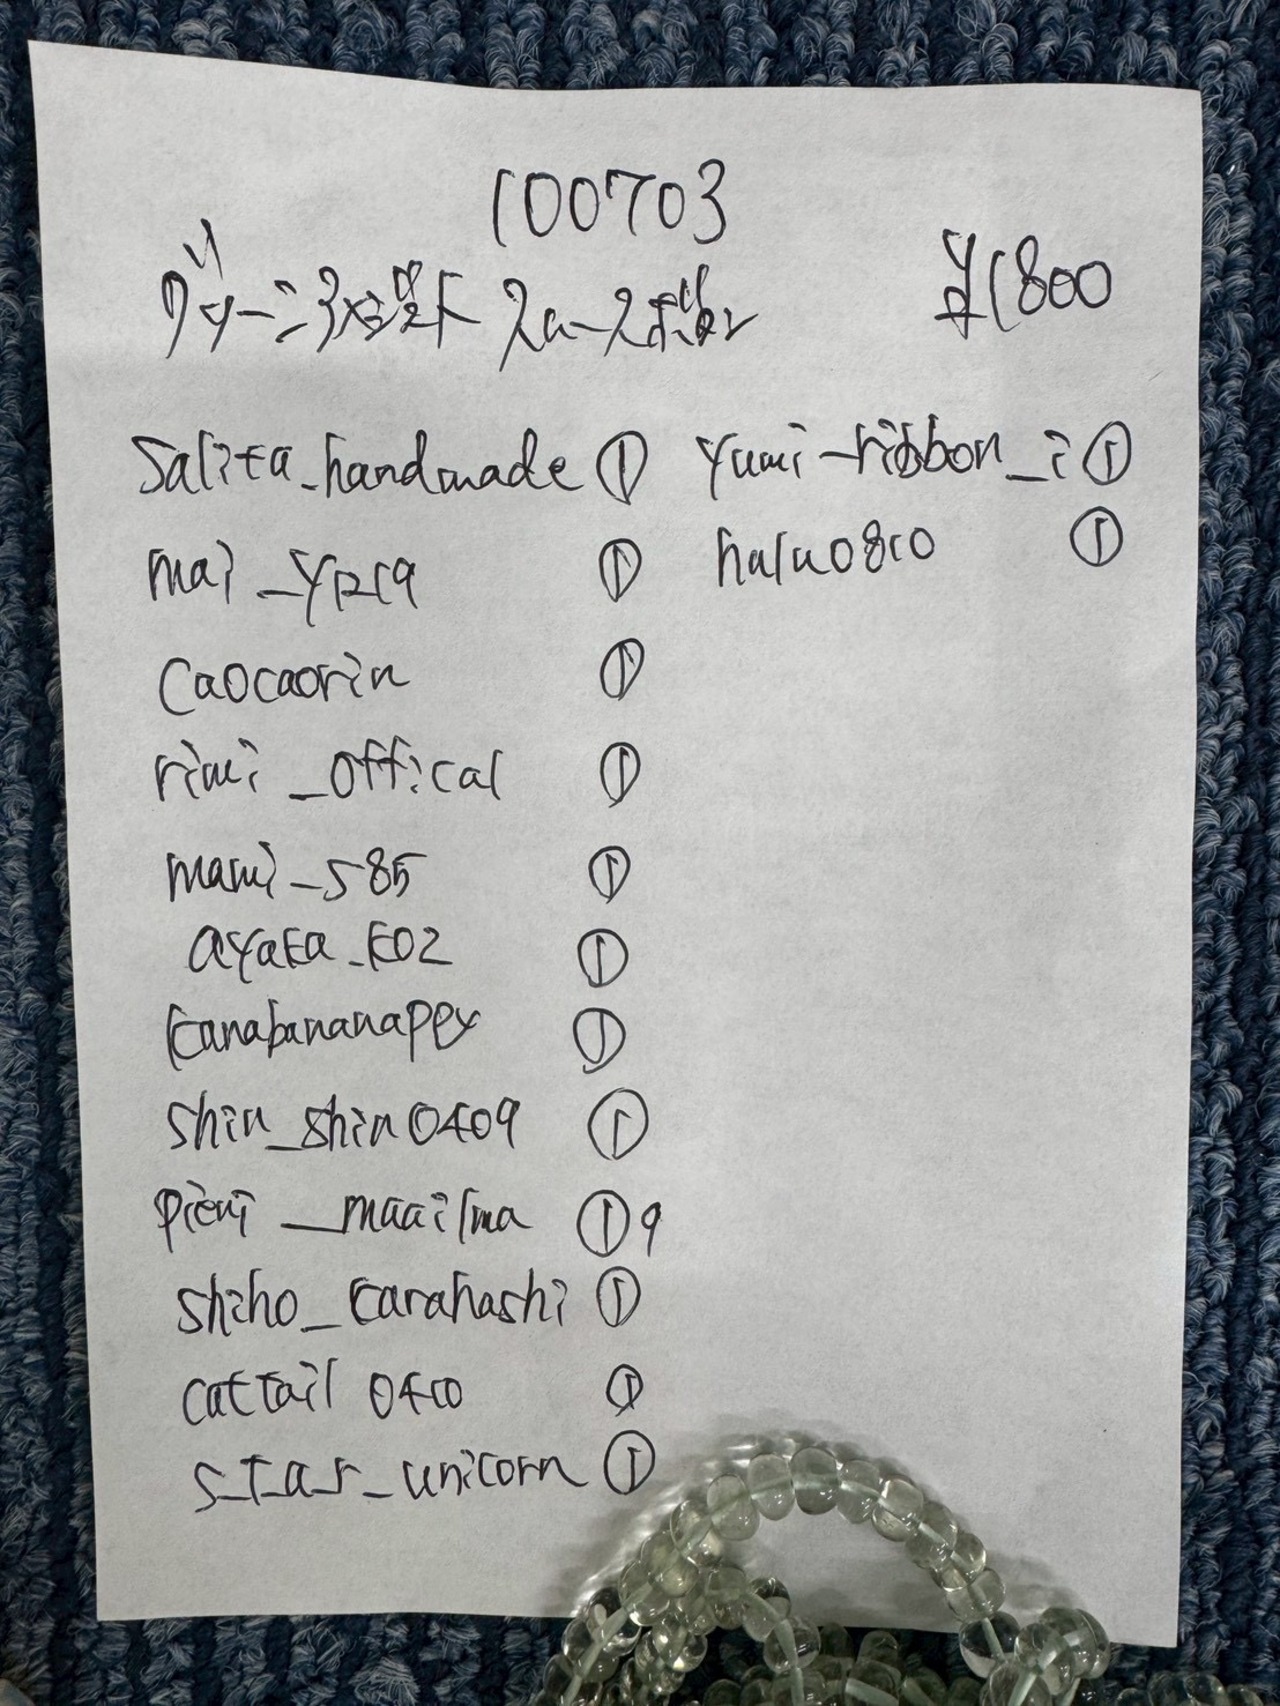 100703
¥1800
Salita_handmade ①
mai_yr219 ①
caocaorin ①
rimi_offical ①
mami_s85 ①
ayaka_k02 ①
kanabananappy ①
shin_shin0409 ①
pieni_maailma ① 9
shiho_karahashi ①
cattail 0410 ①
s_t_a_r_unicorn ①
yumi-ribbon_i ①
halu0810 ①